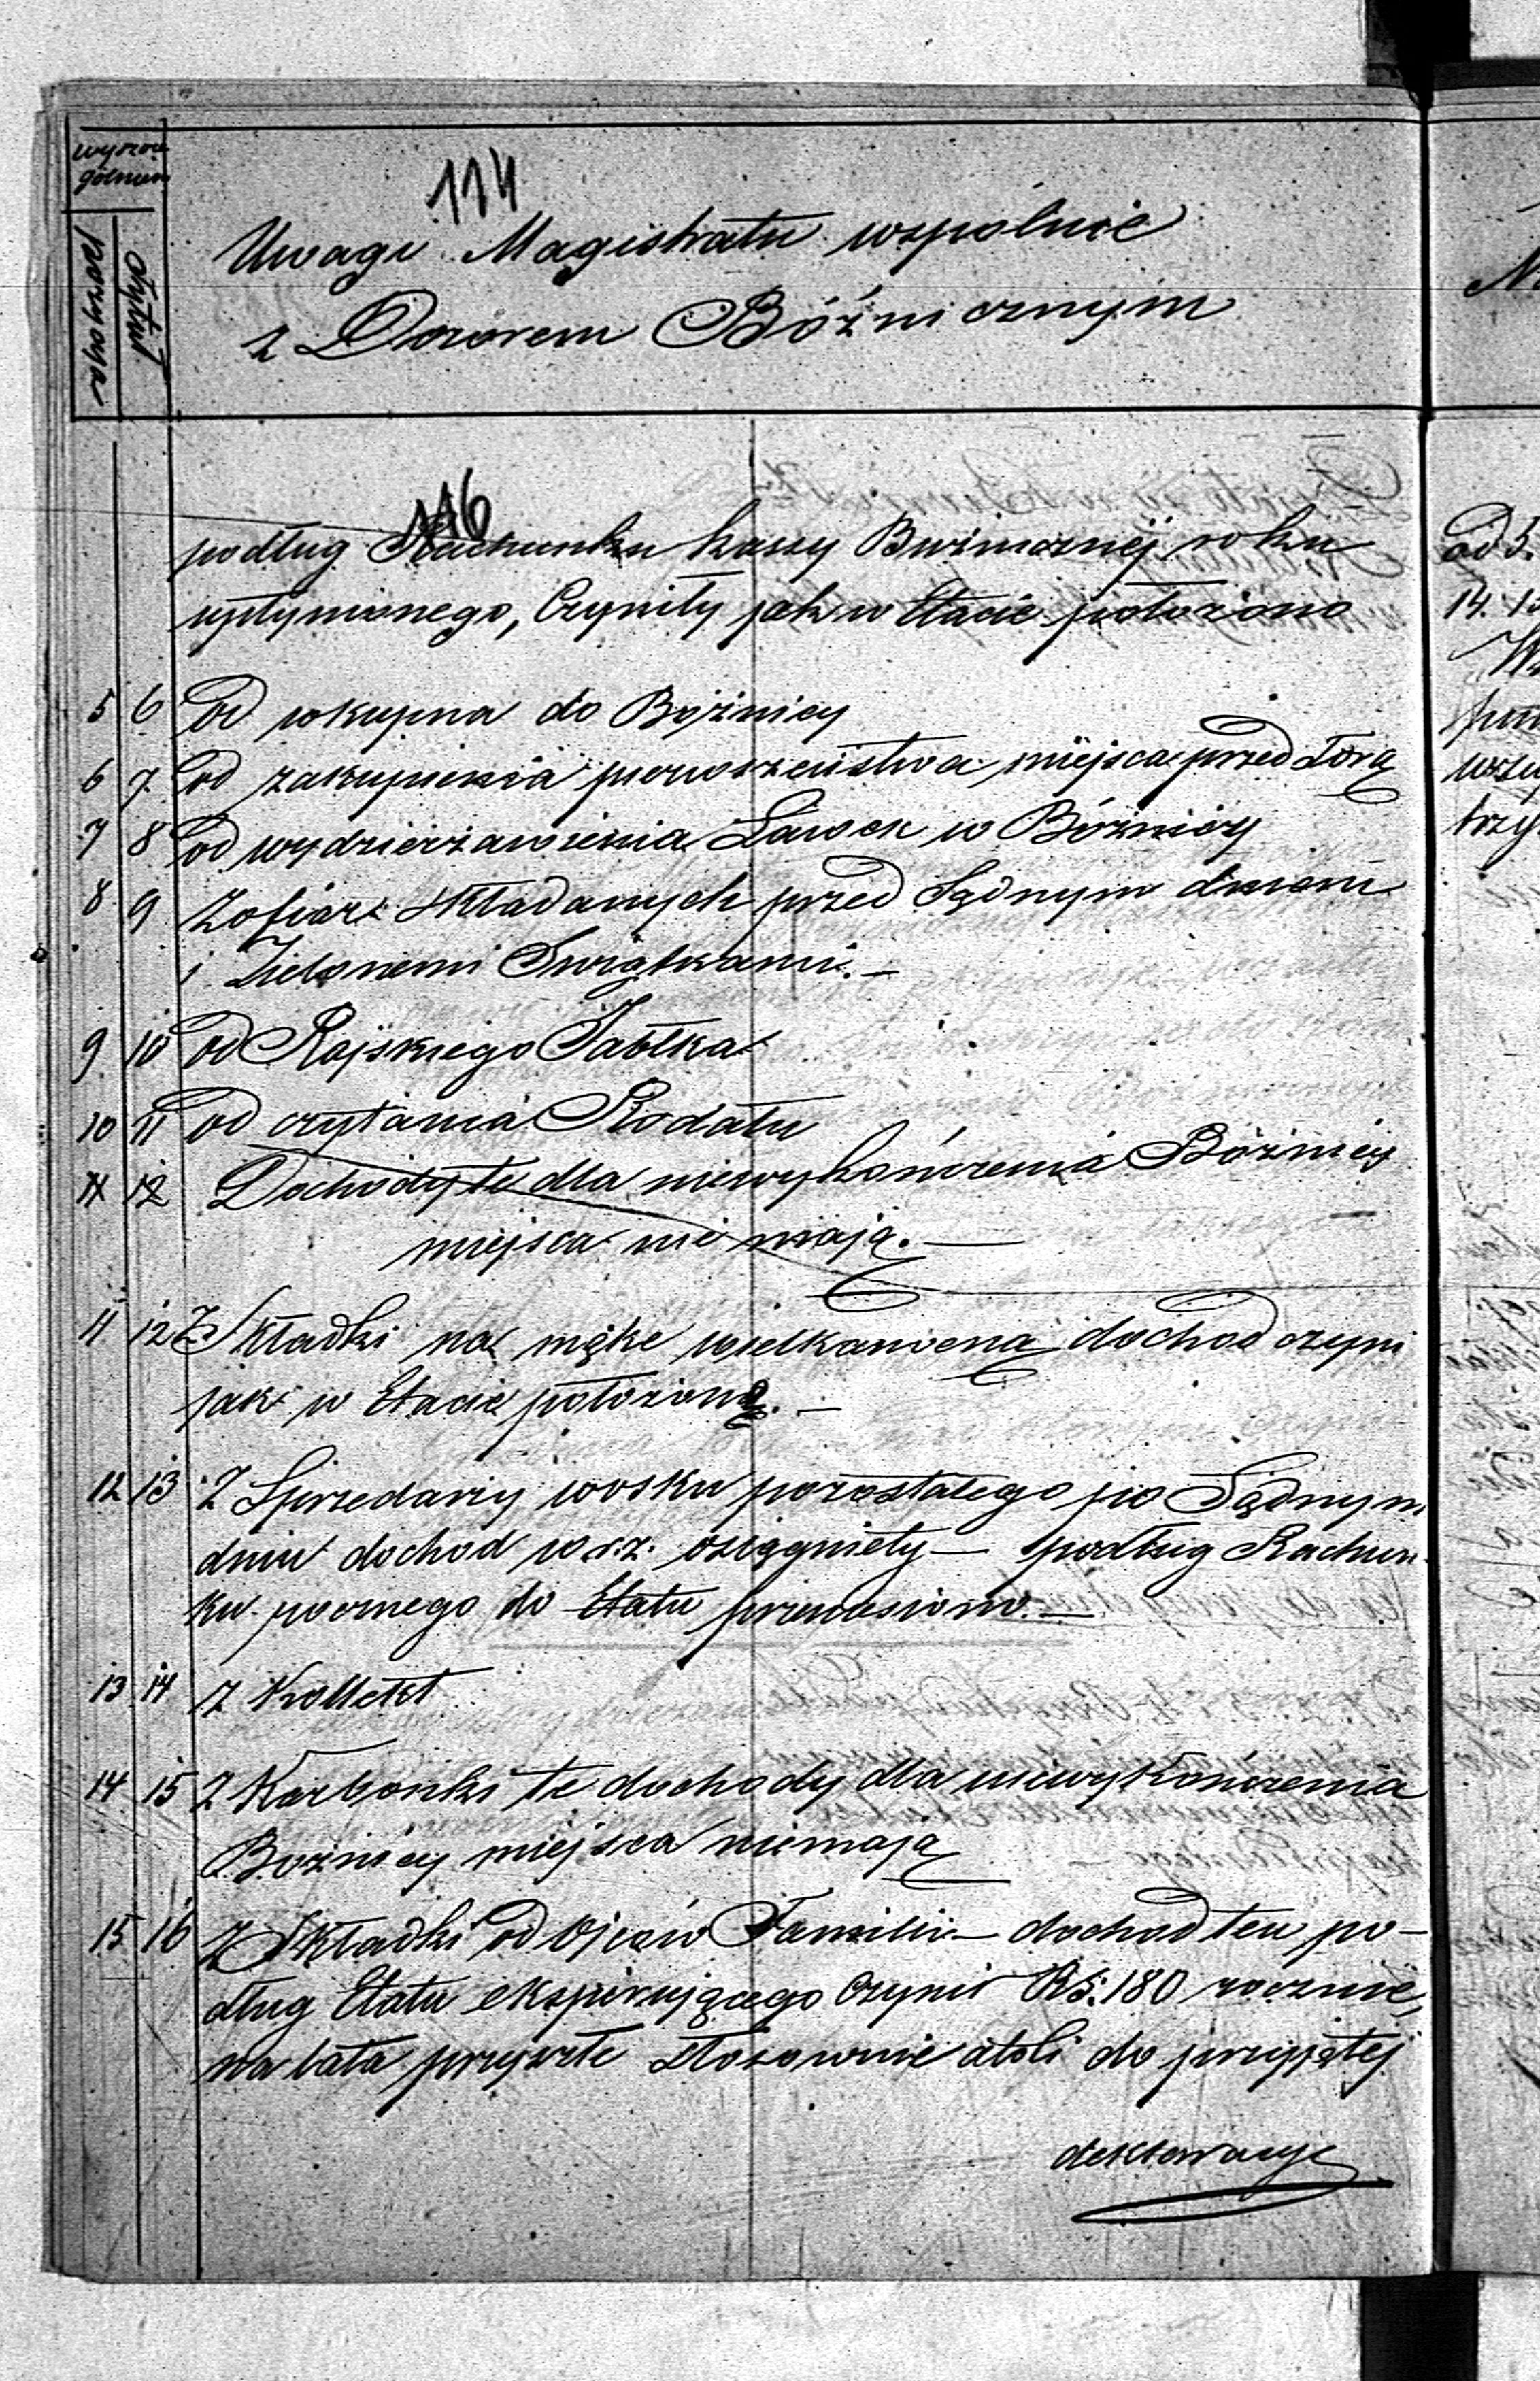 114
wyszcze
gólnien
pozycya
tytuł
Uwagi Magistratu wspólnie
z Dozorem Bóźnicznym
116
podług Rachunku kassy Bużnicznéj roku
upłynionego, Czyniły jak w Etacie położono
5 6 od wkupna do Bożnicy
6 7. od zakupienia pierwszeństwa miejsca przed Torą
7 8 od wydzierżawienia Ławek w Bóżnicy
8 9 Z ofiar składanych przed Sądnym dniem
i Zielonemi Swiątkami. —
9. 10 od Rajskiego Jabłka
10 11 od czytania Rodału
11 12 Dochody te dla niewykończenia Bóżnicy
miejsca nie mają. —
11 12 Z Składki na mąke wielkanocną dochod czyni
jak w Etacie położono. —
12 13 Z Sprzedarzy wosku pozostałego po Sądnym
dniu dochod w r.z. osiągniety — podług Rachun-
ku rocznego do Etatu przeniesiono. —
13 14 Z Kollekt
14 15 Z Karbonki te dochody dla niewykończenia
Bożnicy miejsca niemają
15 16 Z Składki od Ojców Familii — dochod ten po-
dług Etatu ekspirującego czynił RS. 180 rocznie,
na lata przyszłe stosownie atoli do przyjętej
deklaracyi
od 5.
14.